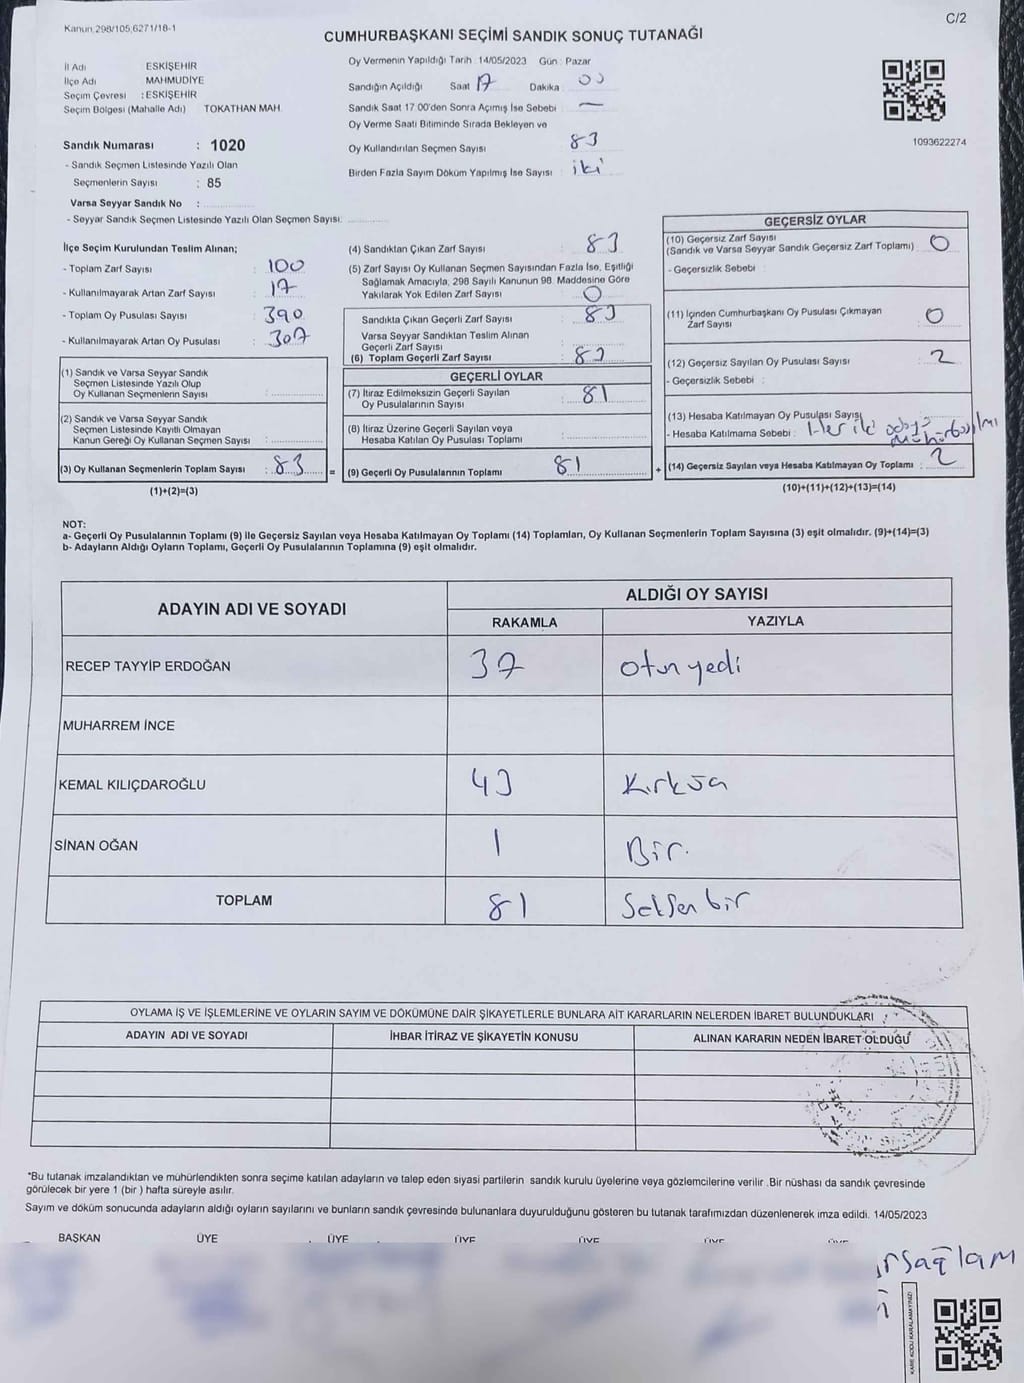 Kanun 298/105,6271/18-1
C/2
CUMHURBAŞKANI SEÇİMİ SANDIK SONUÇ TUTANAĞI
İl Adı ESKİŞEHİR
İlçe Adı MAHMUDİYE
Seçim Çevresi : ESKİŞEHİR
Seçim Bölgesi (Mahalle Adı) TOKATHAN MAH.
Sandık Numarası : 1020
- Sandık Seçmen Listesinde Yazılı Olan
Seçmenlerin Sayısı : 85
Varsa Seyyar Sandık No :
- Seyyar Sandık Seçmen Listesinde Yazılı Olan Seçmen Sayısı:
Oy Vermenin Yapıldığı Tarih : 14/05/2023 Gün : Pazar
Sandığın Açıldığı Saat 17 Dakika : 00
Sandık Saat 17 00'den Sonra Açımış İse Sebebi : —
Oy Verme Saati Bitiminde Sırada Bekleyen ve
Oy Kullandırılan Seçmen Sayısı : 83
Birden Fazla Sayım Döküm Yapılmış İse Sayısı : iki
1093622274
İlçe Seçim Kurulundan Teslim Alınan;
- Toplam Zarf Sayısı : 100
- Kullanılmayarak Artan Zarf Sayısı : 17
- Toplam Oy Pusulası Sayısı : 390
- Kullanılmayarak Artan Oy Pusulası : 307
(1) Sandık ve Varsa Seyyar Sandık
Seçmen Listesinde Yazılı Olup
Oy Kullanan Seçmenlerin Sayısı :
(2) Sandık ve Varsa Seyyar Sandık
Seçmen Listesinde Kayıtlı Olmayan
Kanun Gereği Oy Kullanan Seçmen Sayısı :
(3) Oy Kullanan Seçmenlerin Toplam Sayısı : 83 =
(1)+(2)=(3)
(4) Sandıktan Çıkan Zarf Sayısı : 83
(5) Zarf Sayısı Oy Kullanan Seçmen Sayısından Fazla İse, Eşitliği
Sağlamak Amacıyla, 298 Sayılı Kanunun 98. Maddesine Göre
Yakılarak Yok Edilen Zarf Sayısı : 0
Sandıkta Çıkan Geçerli Zarf Sayısı : 83
Varsa Seyyar Sandıktan Teslim Alınan
Geçerli Zarf Sayısı
(6) Toplam Geçerli Zarf Sayısı : 83
GEÇERLİ OYLAR
(7) İtiraz Edilmeksizin Geçerli Sayılan
Oy Pusulalarının Sayısı : 81
(8) İtiraz Üzerine Geçerli Sayılan veya
Hesaba Katılan Oy Pusulası Toplamı :
(9) Geçerli Oy Pusulalarının Toplamı : 81 +
GEÇERSİZ OYLAR
(10) Geçersiz Zarf Sayısı
(Sandık ve Varsa Seyyar Sandık Geçersiz Zarf Toplamı) : 0
- Geçersizlik Sebebi :
(11) İçinden Cumhurbaşkanı Oy Pusulası Çıkmayan
Zarf Sayısı : 0
(12) Geçersiz Sayılan Oy Pusulası Sayısı : 2
- Geçersizlik Sebebi :
(13) Hesaba Katılmayan Oy Pusulası Sayısı
- Hesaba Katılmama Sebebi : Her iki
(14) Geçersiz Sayılan veya Hesaba Katılmayan Oy Toplamı : 2
(10)+(11)+(12)+(13)=(14)
NOT:
a- Geçerli Oy Pusulalarının Toplamı (9) ile Geçersiz Sayılan veya Hesaba Katılmayan Oy Toplamı (14) Toplamları, Oy Kullanan Seçmenlerin Toplam Sayısına (3) eşit olmalıdır. (9)+(14)=(3)
b- Adayların Aldığı Oyların Toplamı, Geçerli Oy Pusulalarının Toplamına (9) eşit olmalıdır.
ADAYIN ADI VE SOYADI
ALDIĞI OY SAYISI
RAKAMLA YAZIYLA
RECEP TAYYİP ERDOĞAN 37 otuz yedi
MUHARREM İNCE
KEMAL KILIÇDAROĞLU 43 Kırküç
SİNAN OĞAN 1 Bir.
TOPLAM 81 Seksen bir
OYLAMA İŞ VE İŞLEMLERİNE VE OYLARIN SAYIM VE DÖKÜMÜNE DAİR ŞİKAYETLERLE BUNLARA AİT KARARLARIN NELERDEN İBARET BULUNDUKLARI
ADAYIN ADI VE SOYADI İHBAR İTİRAZ VE ŞİKAYETİN KONUSU ALINAN KARARIN NEDEN İBARET OLDUĞU
*Bu tutanak imzalandıktan ve mühürlendikten sonra seçime katılan adayların ve talep eden siyasi partilerin sandık kurulu üyelerine veya gözlemcilerine verilir .Bir nüshası da sandık çevresinde
görülecek bir yere 1 (bir ) hafta süreyle asılır.
Sayım ve döküm sonucunda adayların aldığı oyların sayılarını ve bunların sandık çevresinde bulunanlara duyurulduğunu gösteren bu tutanak tarafımızdan düzenlenerek imza edildi. 14/05/2023
BAŞKAN ÜYE ÜYE ÜYE ÜYE ÜYE
KARE KODU KARALAMAYINIZ!